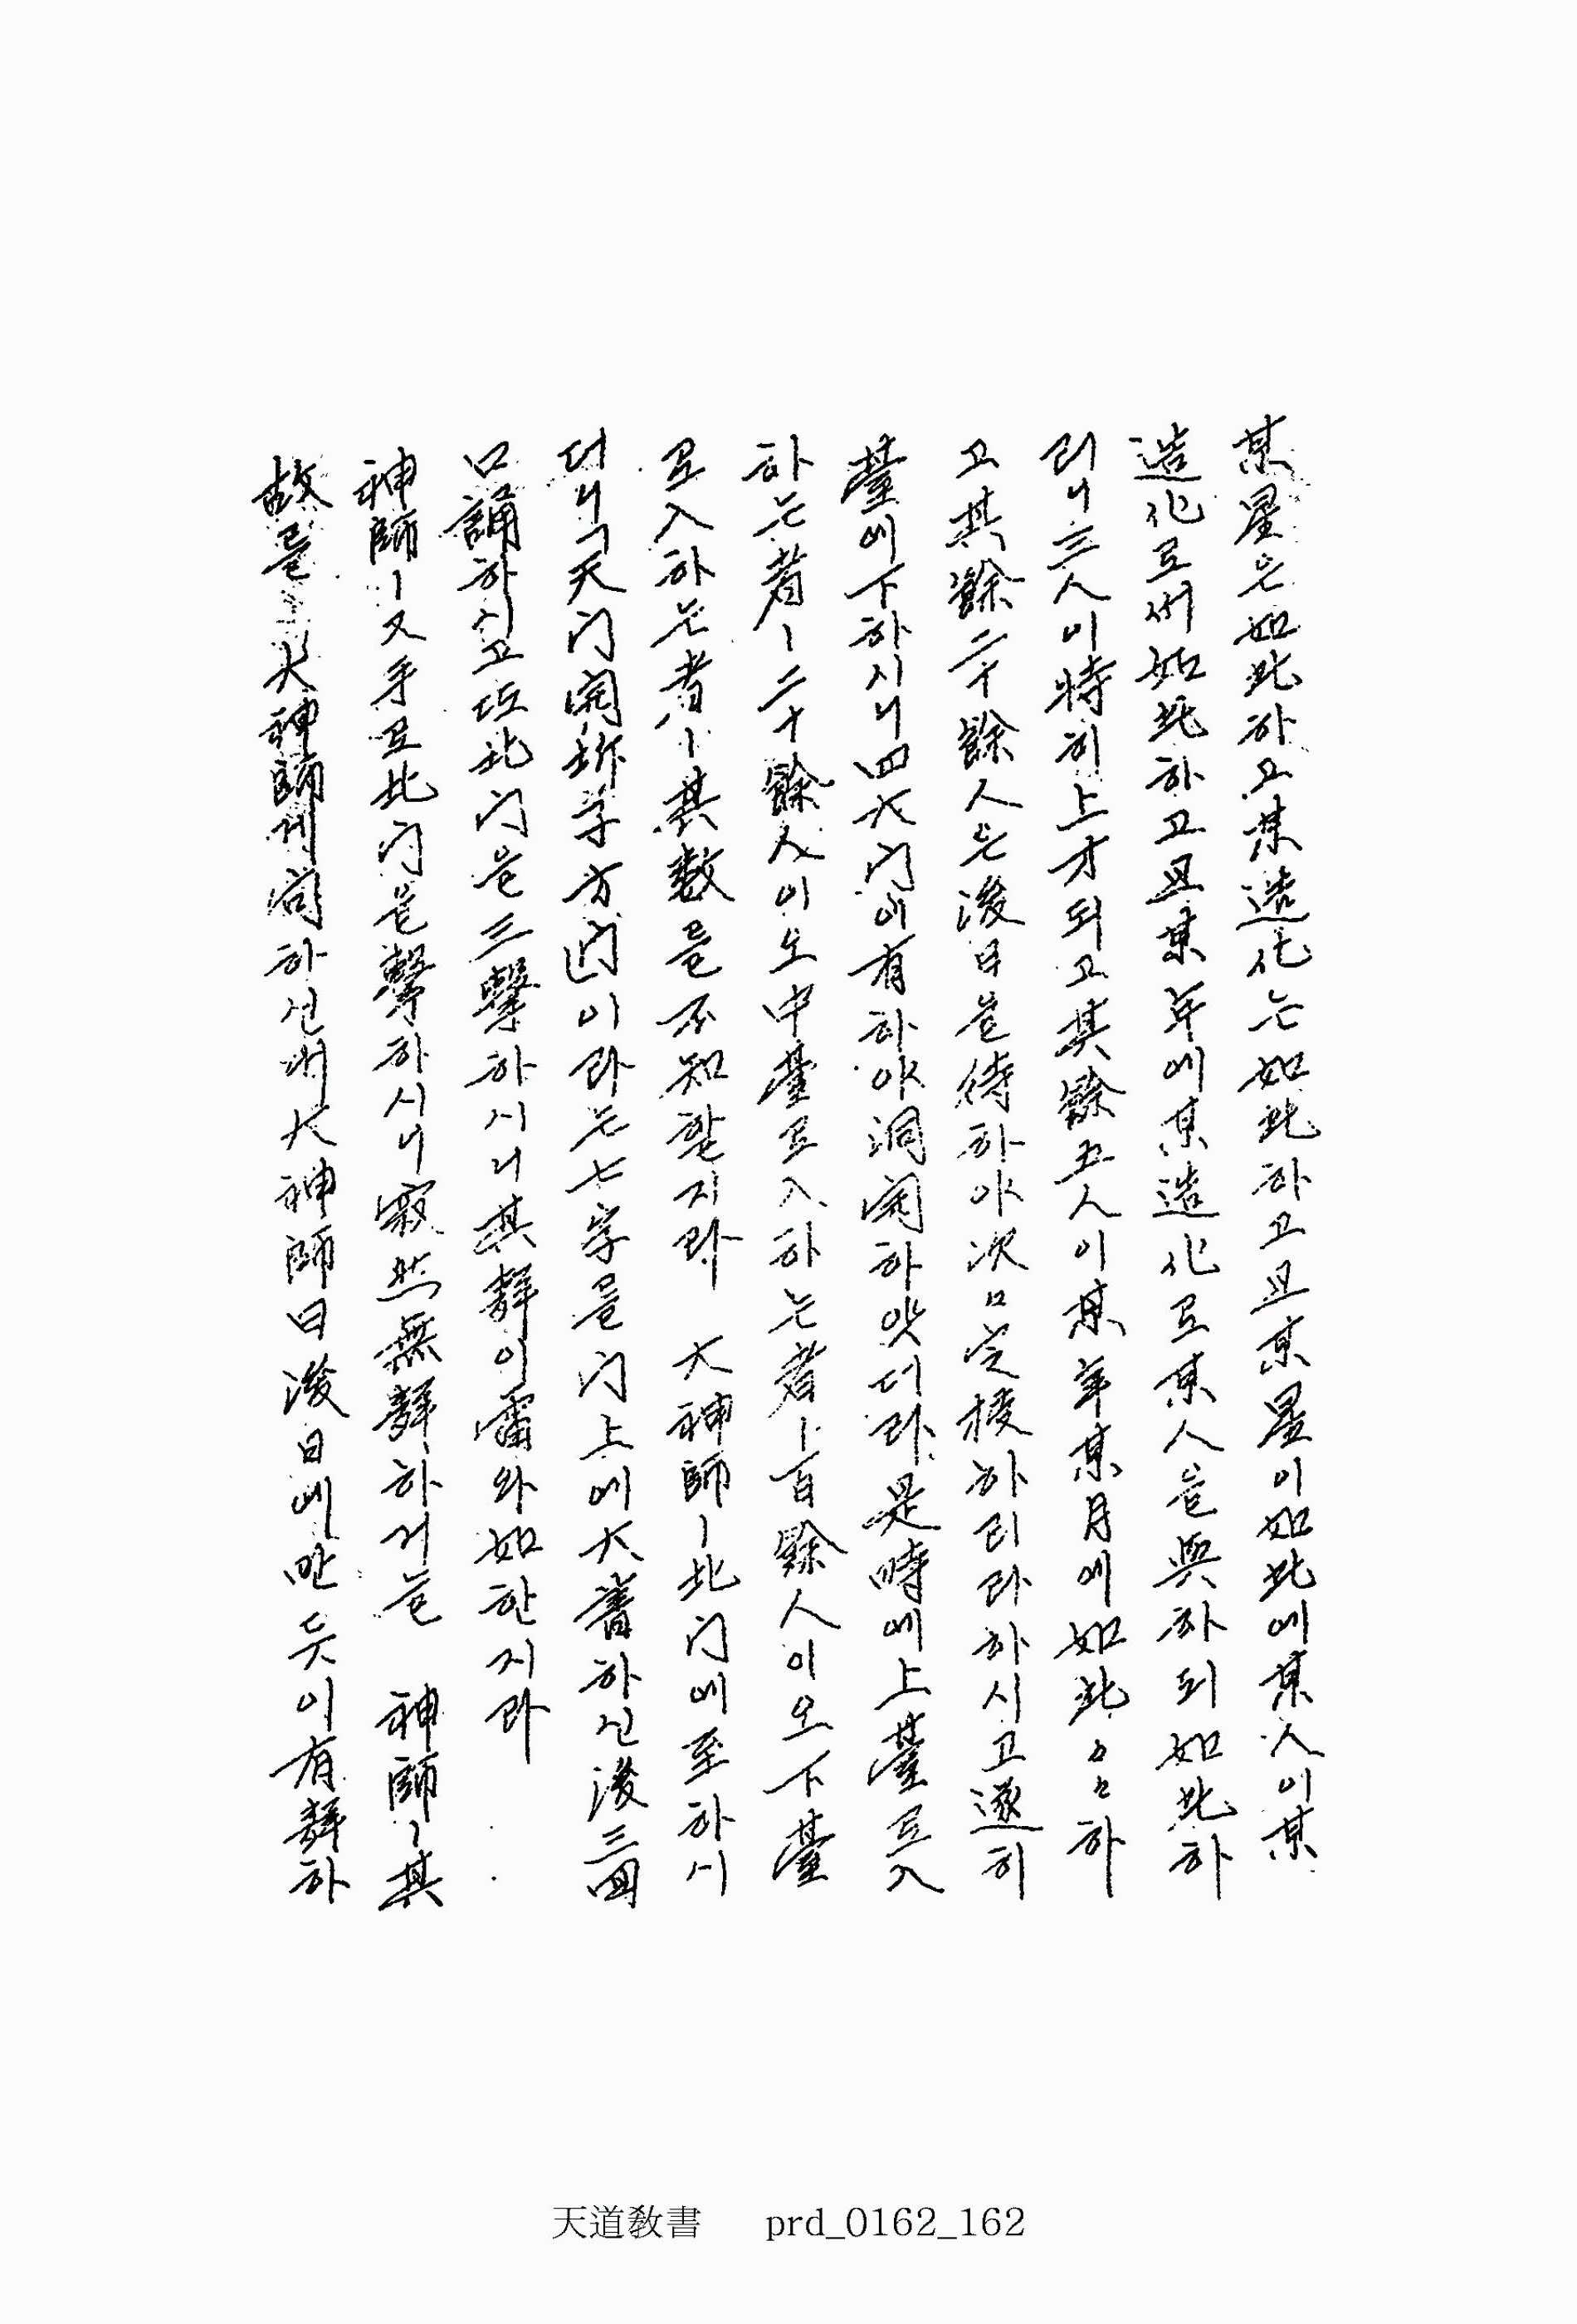 某星은如此하고某造化는如此하고且某星이如此에某人이某
造化로써如此하고且某年에某造化로某人을與하되如此하
리니三人이特히上才되고其餘五人이某年某月에如此々々하
고其餘二十餘人은後日을待하야次々定授하리라하시고遂히
臺에下하시니四大門에有하야洞開하얏더라是時에上臺로入
하는者ㅣ二十餘人이오中臺로入하는者ㅣ百餘人이오下臺
로入하는者ㅣ其數를不知할지라 大神師ㅣ北門에至하시
더니「天門開坼子方門」이라는七字를門上에大書하신後三回
口誦하시고北門을三擊하시니其聲이雷와如한지라
神師ㅣ又手로北門을擊하시니寂然無聲하거늘 神師ㅣ其
故를 大神師께問하신대大神師曰後日에반듯이有聲하
天道敎書 prd_0162_162